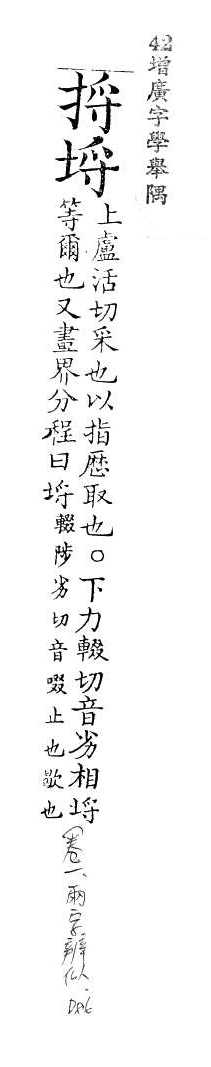 42增廣字學舉隅
捋埒
上盧活切采也以指歷取也○下力輟切音劣相埒
等爾也又畫界分程曰埒輟陟劣切音啜止也歇也
(卷一、兩字辨似.